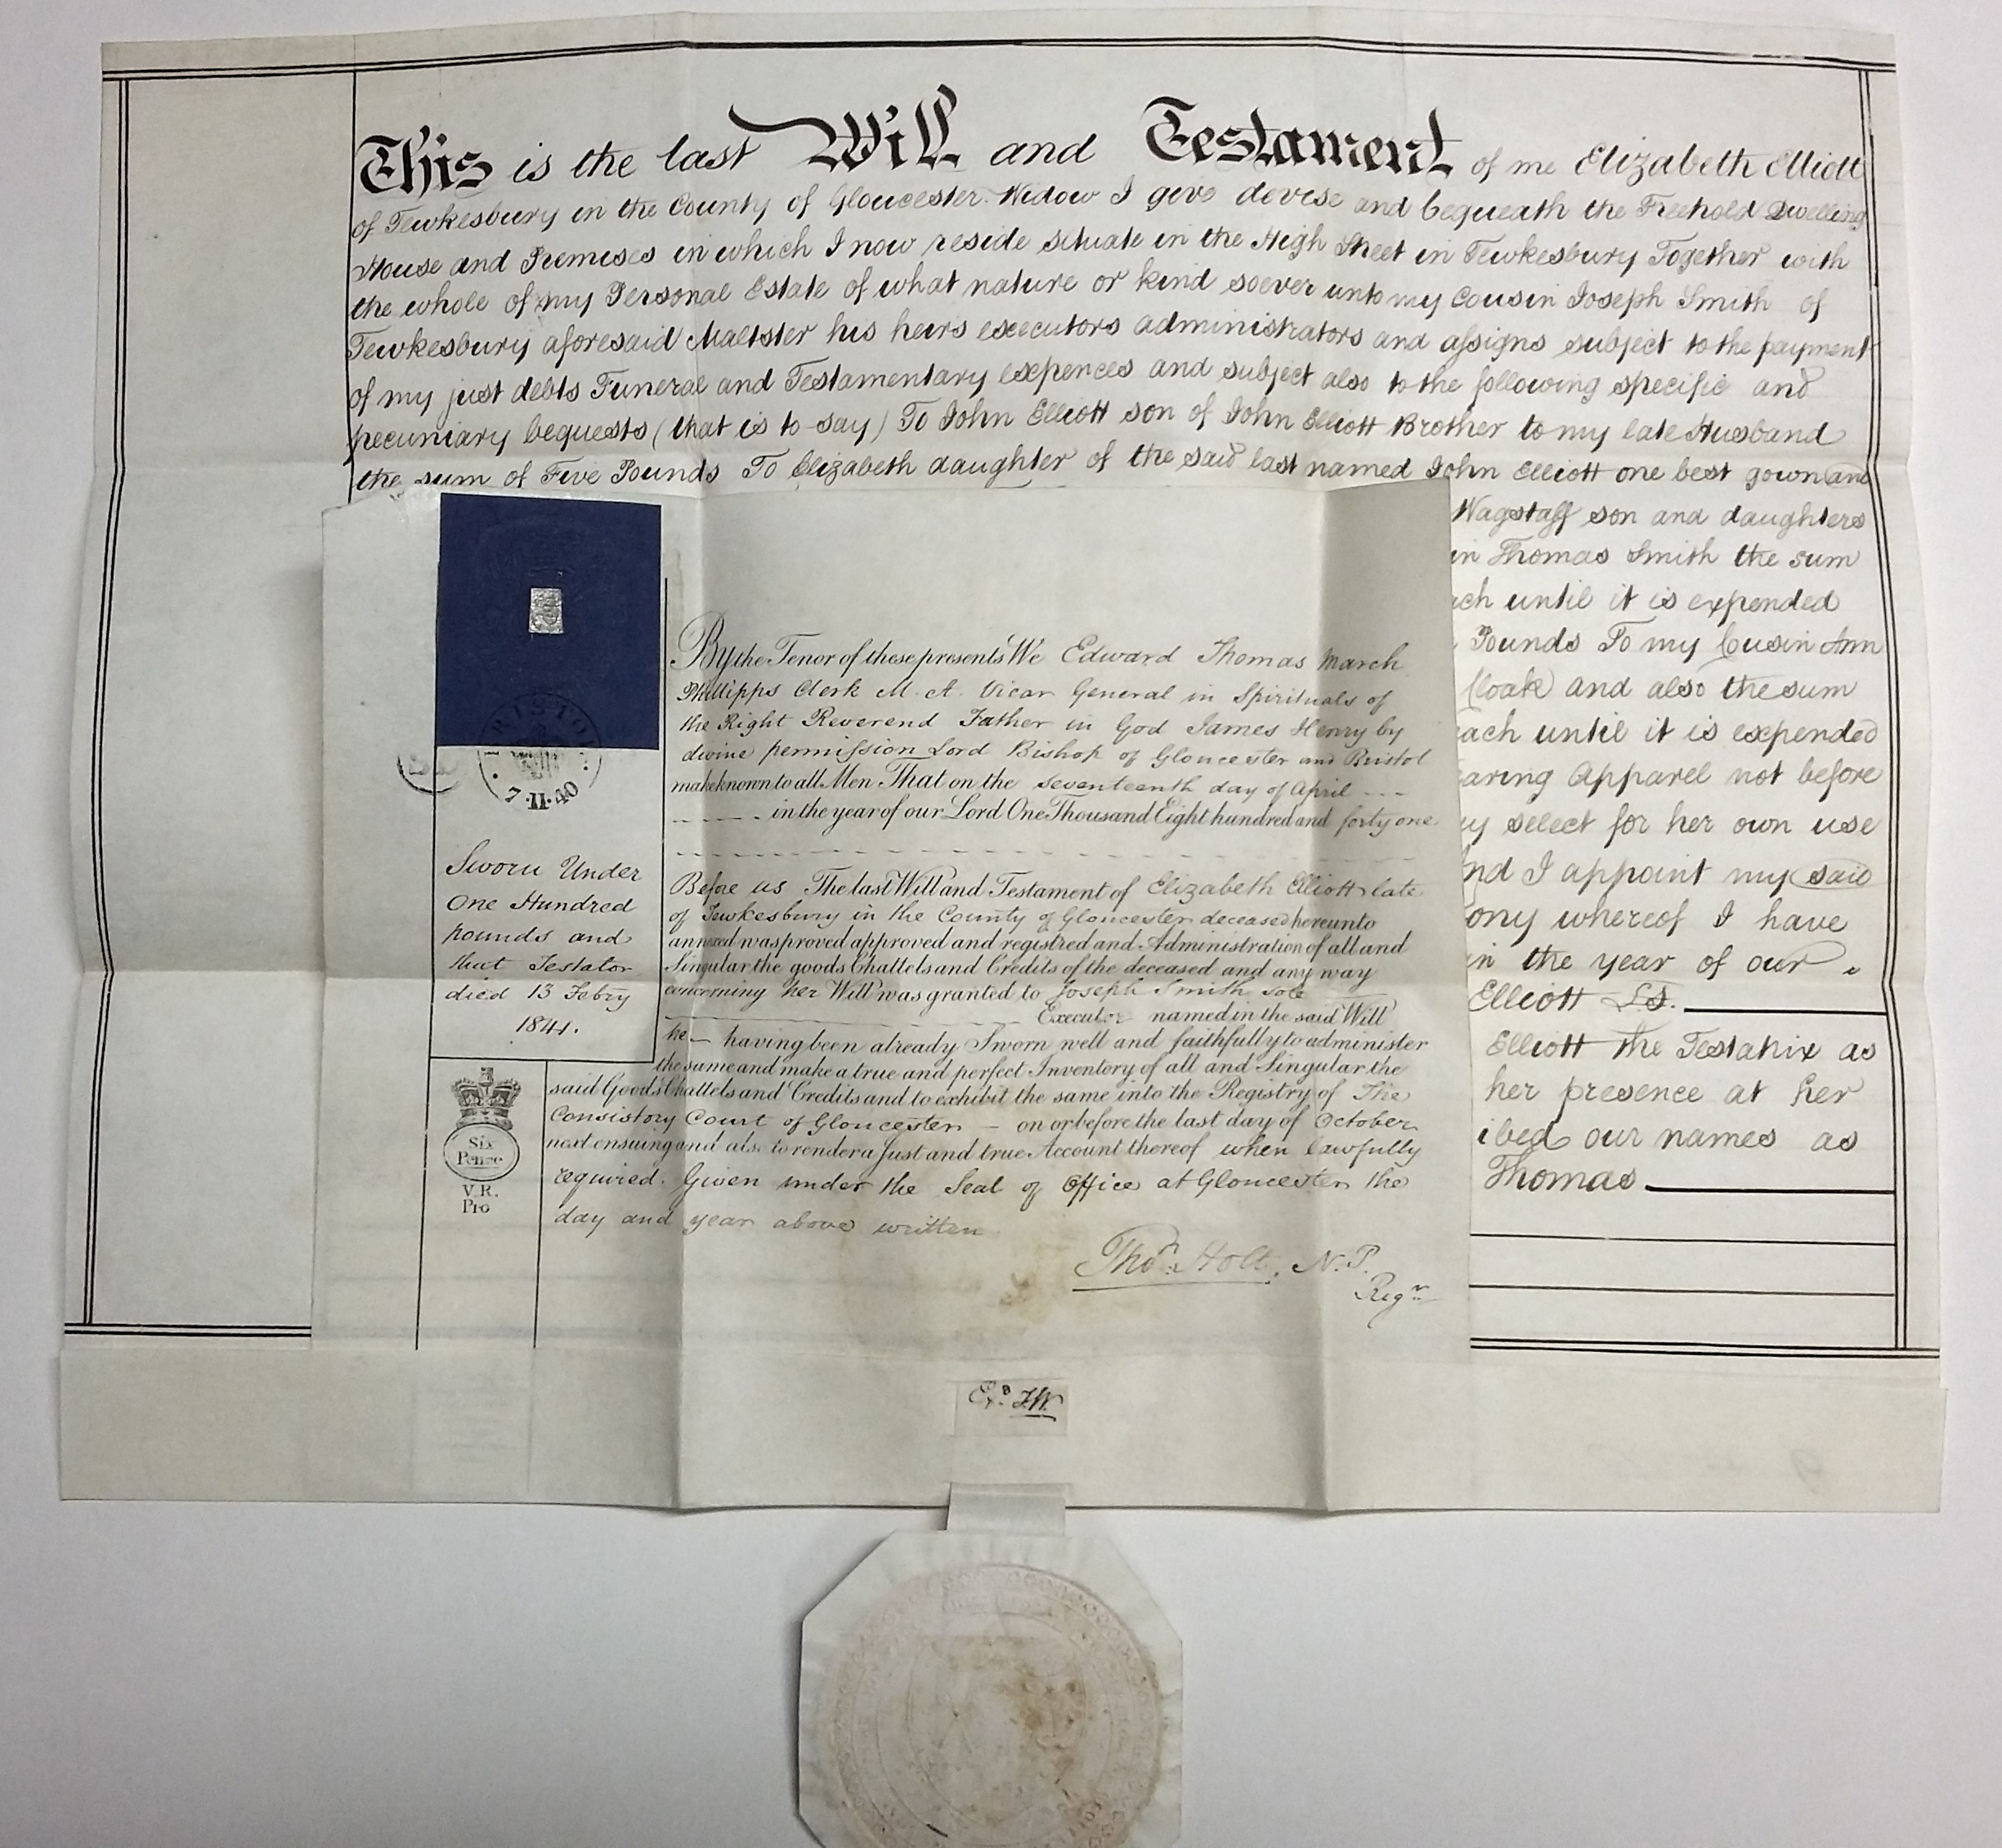 This is the last Will and Testament of me Elizabeth Elliott
of Tewkesbury in the County of Gloucester Widow I give devise and bequeath the Freehold Dwelling
House and Premises in which I now reside situate in the High Street in Tewkesbury Together with
the whole of my Personal Estate of what nature or kind soever unto my Cousin Joseph Smith of
Tewkesbury aforesaid Maltster his heirs executors administrators and assigns subject to the payment
of my just debts Funeral and Testamentary expences and subject also to the following specific and
pecuniary bequests (that is to say) To John Elliott son of John Elliott Brother to my late Husband
the sum of Five Pounds To Elizabeth daughter of the said last named John Elliott one best gown and
Wagstaff son and daughters
in Thomas Smith the sum
ch until it is expended
Pounds To my Cousin Ann
Cloak and also the sum
ach until it is expended
aring Apparel not before
y select for her own use
nd I appoint my said
ony whereof I have
in the year of our
Elliott LS.
Elliott the Testatrix as
her presence at her
ibed our names as
Thomas
RISTO
7·11·40
Sworn Under
One Hundred
pounds and
that Testator
died 13 Febry
1841.
Six
Pence
V.R.
Pro
By the Tenor of these presents We Edward Thomas March
Phillipps Clerk M. A. Vicar General in Spirituals of
the Right Reverend Father in God James Henry by
divine permission Lord Bishop of Gloucester and Bristol
make known to all Men That on the seventeenth day of April
in the year of our Lord One Thousand Eight hundred and forty one
Before us The last Will and Testament of Elizabeth Elliott late
of Tewkesbury in the County of Gloucester deceased hereunto
annexed was proved approved and registred and Administration of all and
Singular the goods Chattels and Credits of the deceased and any way
concerning her Will was granted to Joseph Smith sole
Executor named in the said Will
he having been already Sworn well and faithfully to administer
the same and make a true and perfect Inventory of all and Singular the
said Goods Chattels and Credits and to exhibit the same into the Registry of The
Consistory Court of Gloucester – on or before the last day of October
next ensuing and also to render a Just and true Account thereof when lawfully
required. Given under the Seal of Office at Gloucester the
day and year above written
Thos. Holt, N.P.
Regr
Exd. J.W.